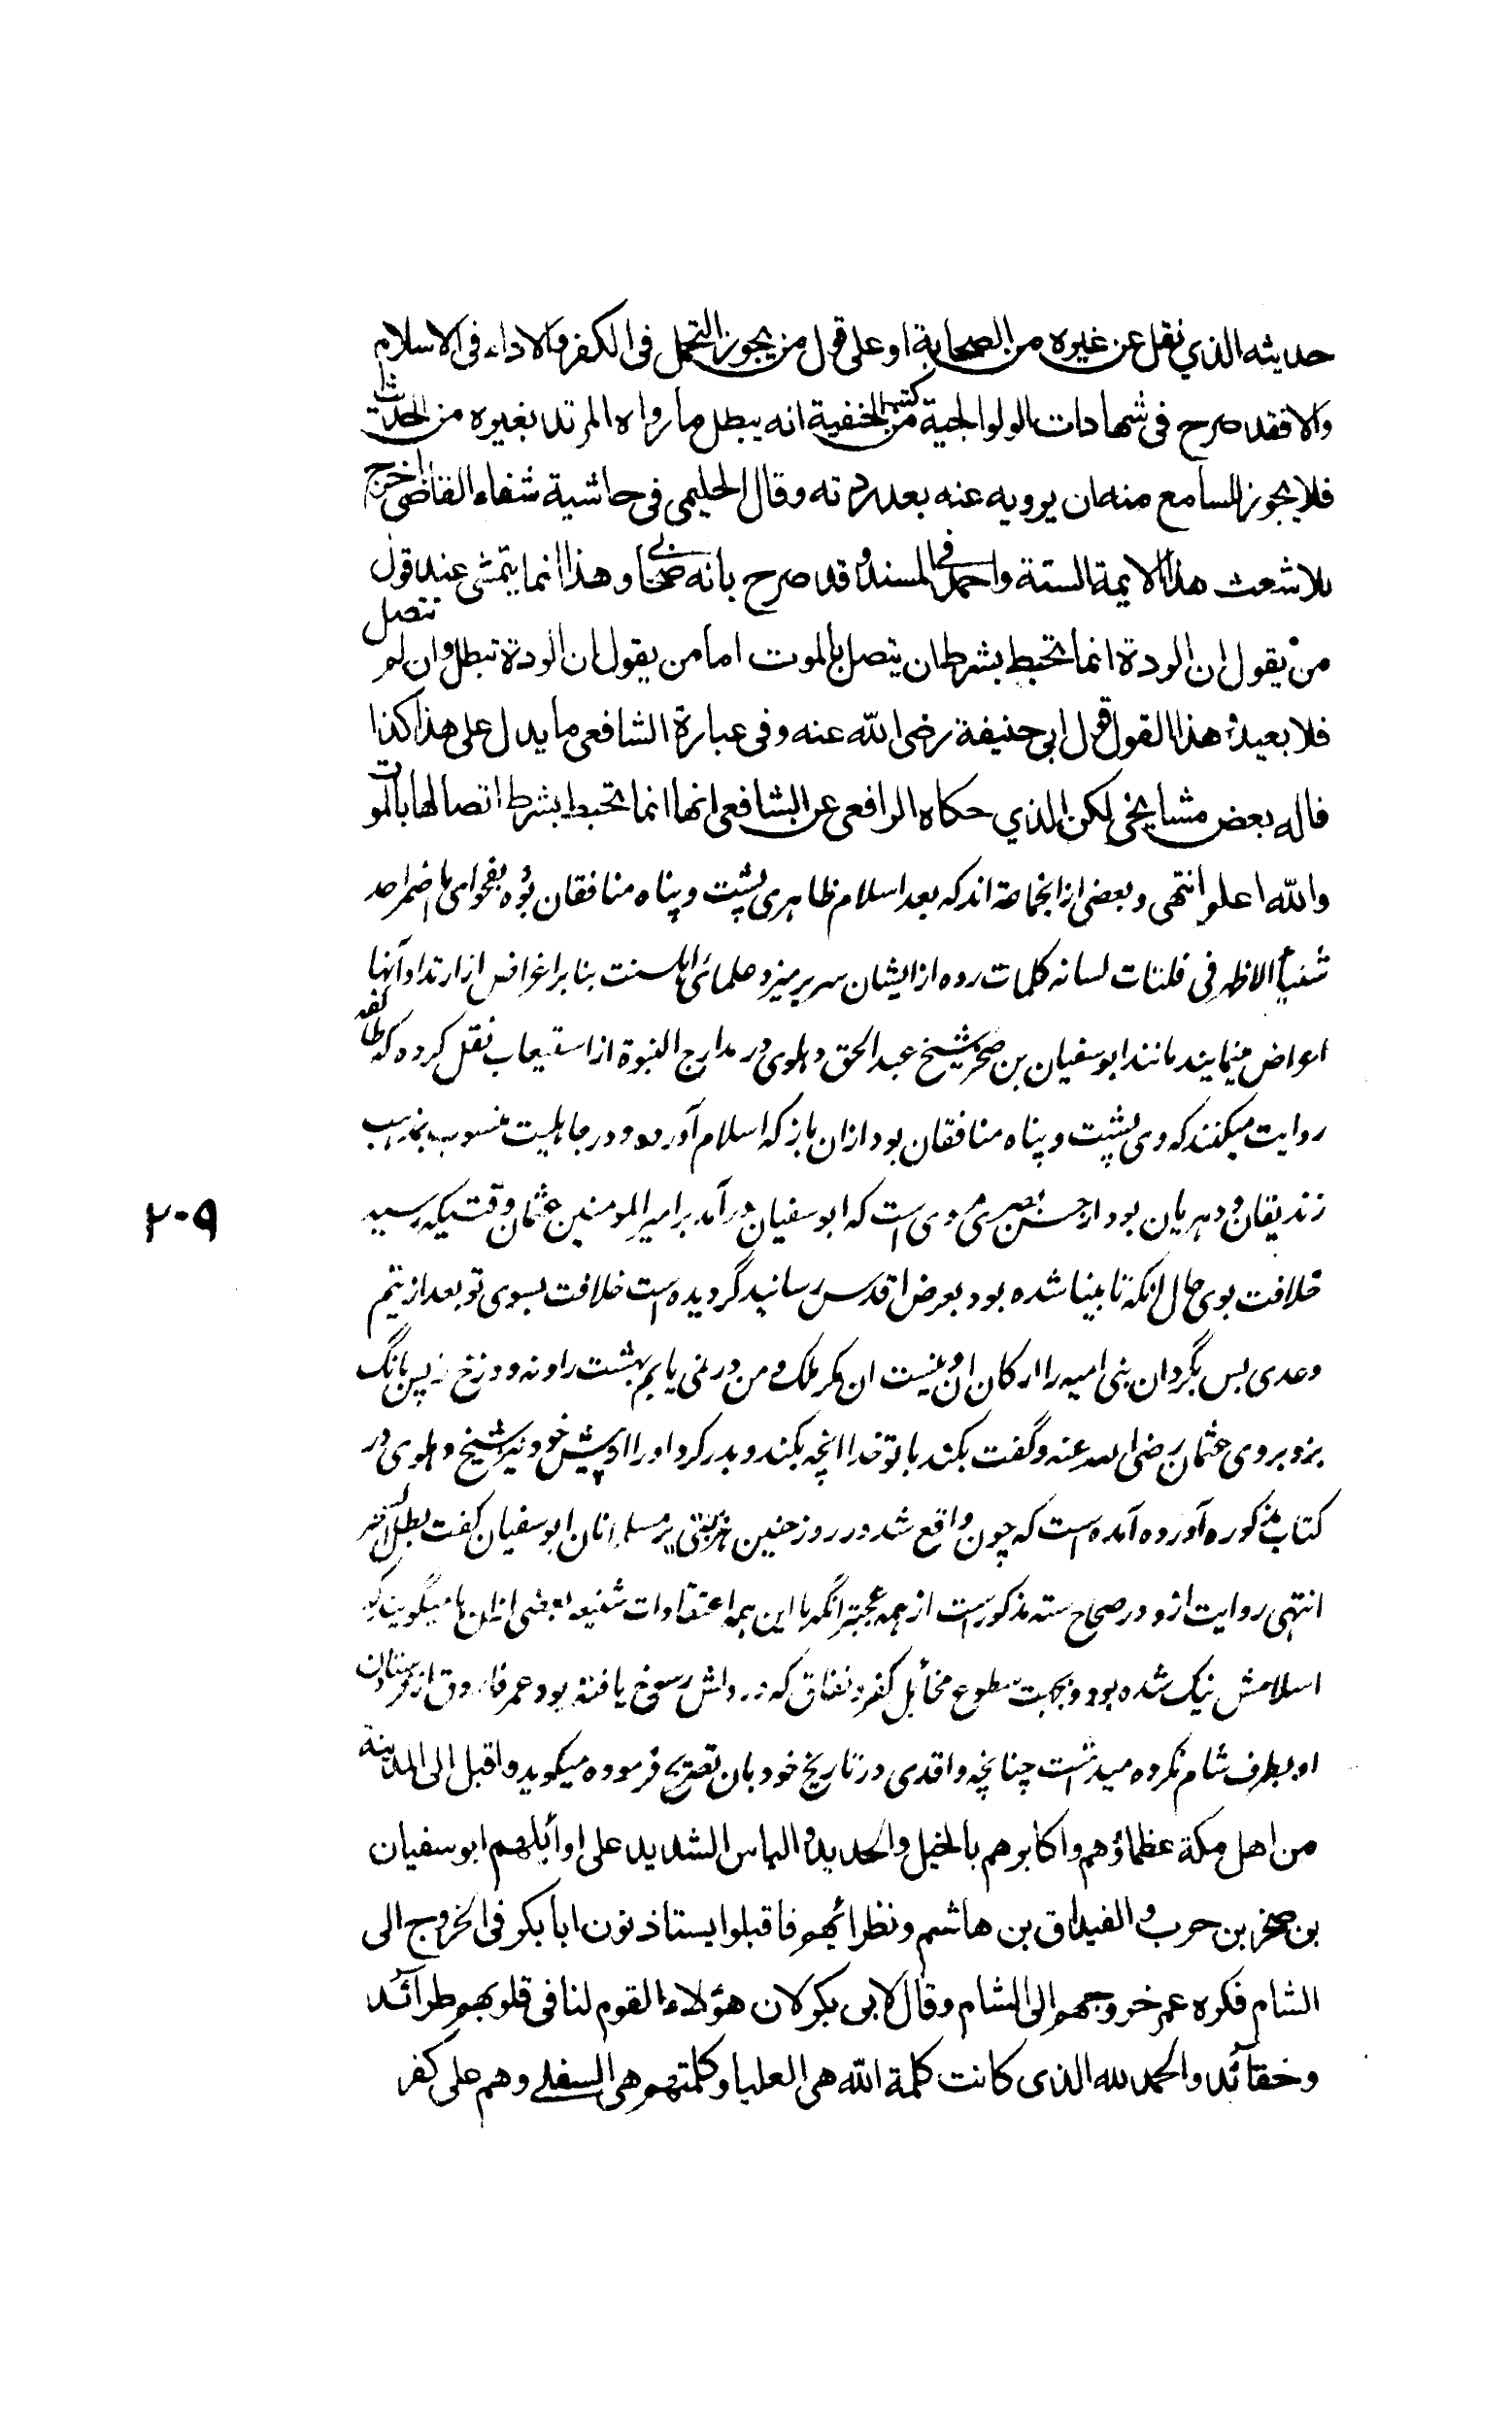 حديثه الذي نقل عن غيره من الصحابة او على قول من يجوز التحمل في الكفر والاداء في الاسلام
والا فقد صرح في شهادات الولوالجية من كتب الحنفية انه يبطل ما رواه المرتد بغيره من الحديث
فلا يجوز للسامع منه ان يرويه عنه بعد ردته وقال الحليمي في حاشية شفاء القاضي اخرج
للاشعث هذا الايمة الستة واحمد في المسند وقد صرح بانه صحابي وهذا انما يتمشى عند قول
من يقول ان الردة انما تحبط بشرط ان يتصل بالموت اما من يقول ان الردة تبطل وان لم تتصل
فلا بعيد وهذا القول قول ابي حنيفة رضي الله عنه وفي عبارة الشافعي ما يدل على هذا كذا
قاله بعض مشايخي لكن الذي حكاه الرافعي عن الشافعي انها انما تحبط بشرط اتصالها بالموت
والله اعلم انتهى وبعضى ازانجماعة اند كه بعد اسلام ظاهرى پشت و پناه منافقان بوده بفحواى ما اضمر احد
شيئا الا ظهر في فلتات لسانه كلمات رده از ايشان سر بر ميزد و علمائى اهلسنت بنا بر اغراض از ارتداد آنها
اعراض مينمايند مانند ابوسفيان بن صخر شيخ عبد الحق دهلوى در مدارج النبوة از استيعاب نقل كرده كه طائفه
روايت ميكنند كه وى پشت و پناه منافقان بود ازان باز كه اسلام آورد و در جاهليت منسوب بمذهب
زنديقان و دهريان بود از حسن بصرى مروى است كه ابوسفيان در آمد بر امير المومنين عثمان وقتيكه رسيد
خلافت بوى حال آنكه نابينا شده بود بعرض اقدس رسانيد گرديده است خلافت بسوى تو بعد از تيم
وعدى پس بگردان بنى اميه را اركان او نيست ان مگر ملك و من در نمى يابم بهشت را و نه دوزخ را پس بانگ
بزد بروى عثمان رضى الله عنه و گفت بكند با تو خدا انچه بكند و بدر كرد او را از پيش خود و نيز شيخ دهلوى در
كتاب مذكوره آورده آمده است كه چون واقع شد در روز حنين هزيمتى بر مسلمانان ابوسفيان گفت بطل السحر
انتهى روايت ازو در صحاح سته مذكور است از همه عجبتر آنكه با اين همه اعتقادات شنيعه بعضى ازان ها ميگويند كه
اسلامش نيك شده بود و بجهت سطوع مخائل كفر و نفاق كه در دلش رسوخ يافته بود عمر فاروق از فرستادن
او بطرف شام مكروه ميداشت چنانچه واقدى در تاريخ خود بان تصريح فرموده ميگويد واقبل الى المدينة
من اهل مكة عظماؤهم واكابرهم بالخيل والحديد والباس الشديد على اوائلهم ابو سفيان
بن صخر بن حرب والغيداق بن هاشم ونظرائهم فاقبلوا يستاذنون ابا بكر في الخروج الى
الشام فكره عمر خروجهم الى الشام وقال لابى بكر لان هؤلاء القوم لنا في قلوبهم طرائد
وحقائد والحمد لله الذى كانت كلمة الله هى العليا وكلمتهم هى السفلى وهم على كفر
٢٠٩